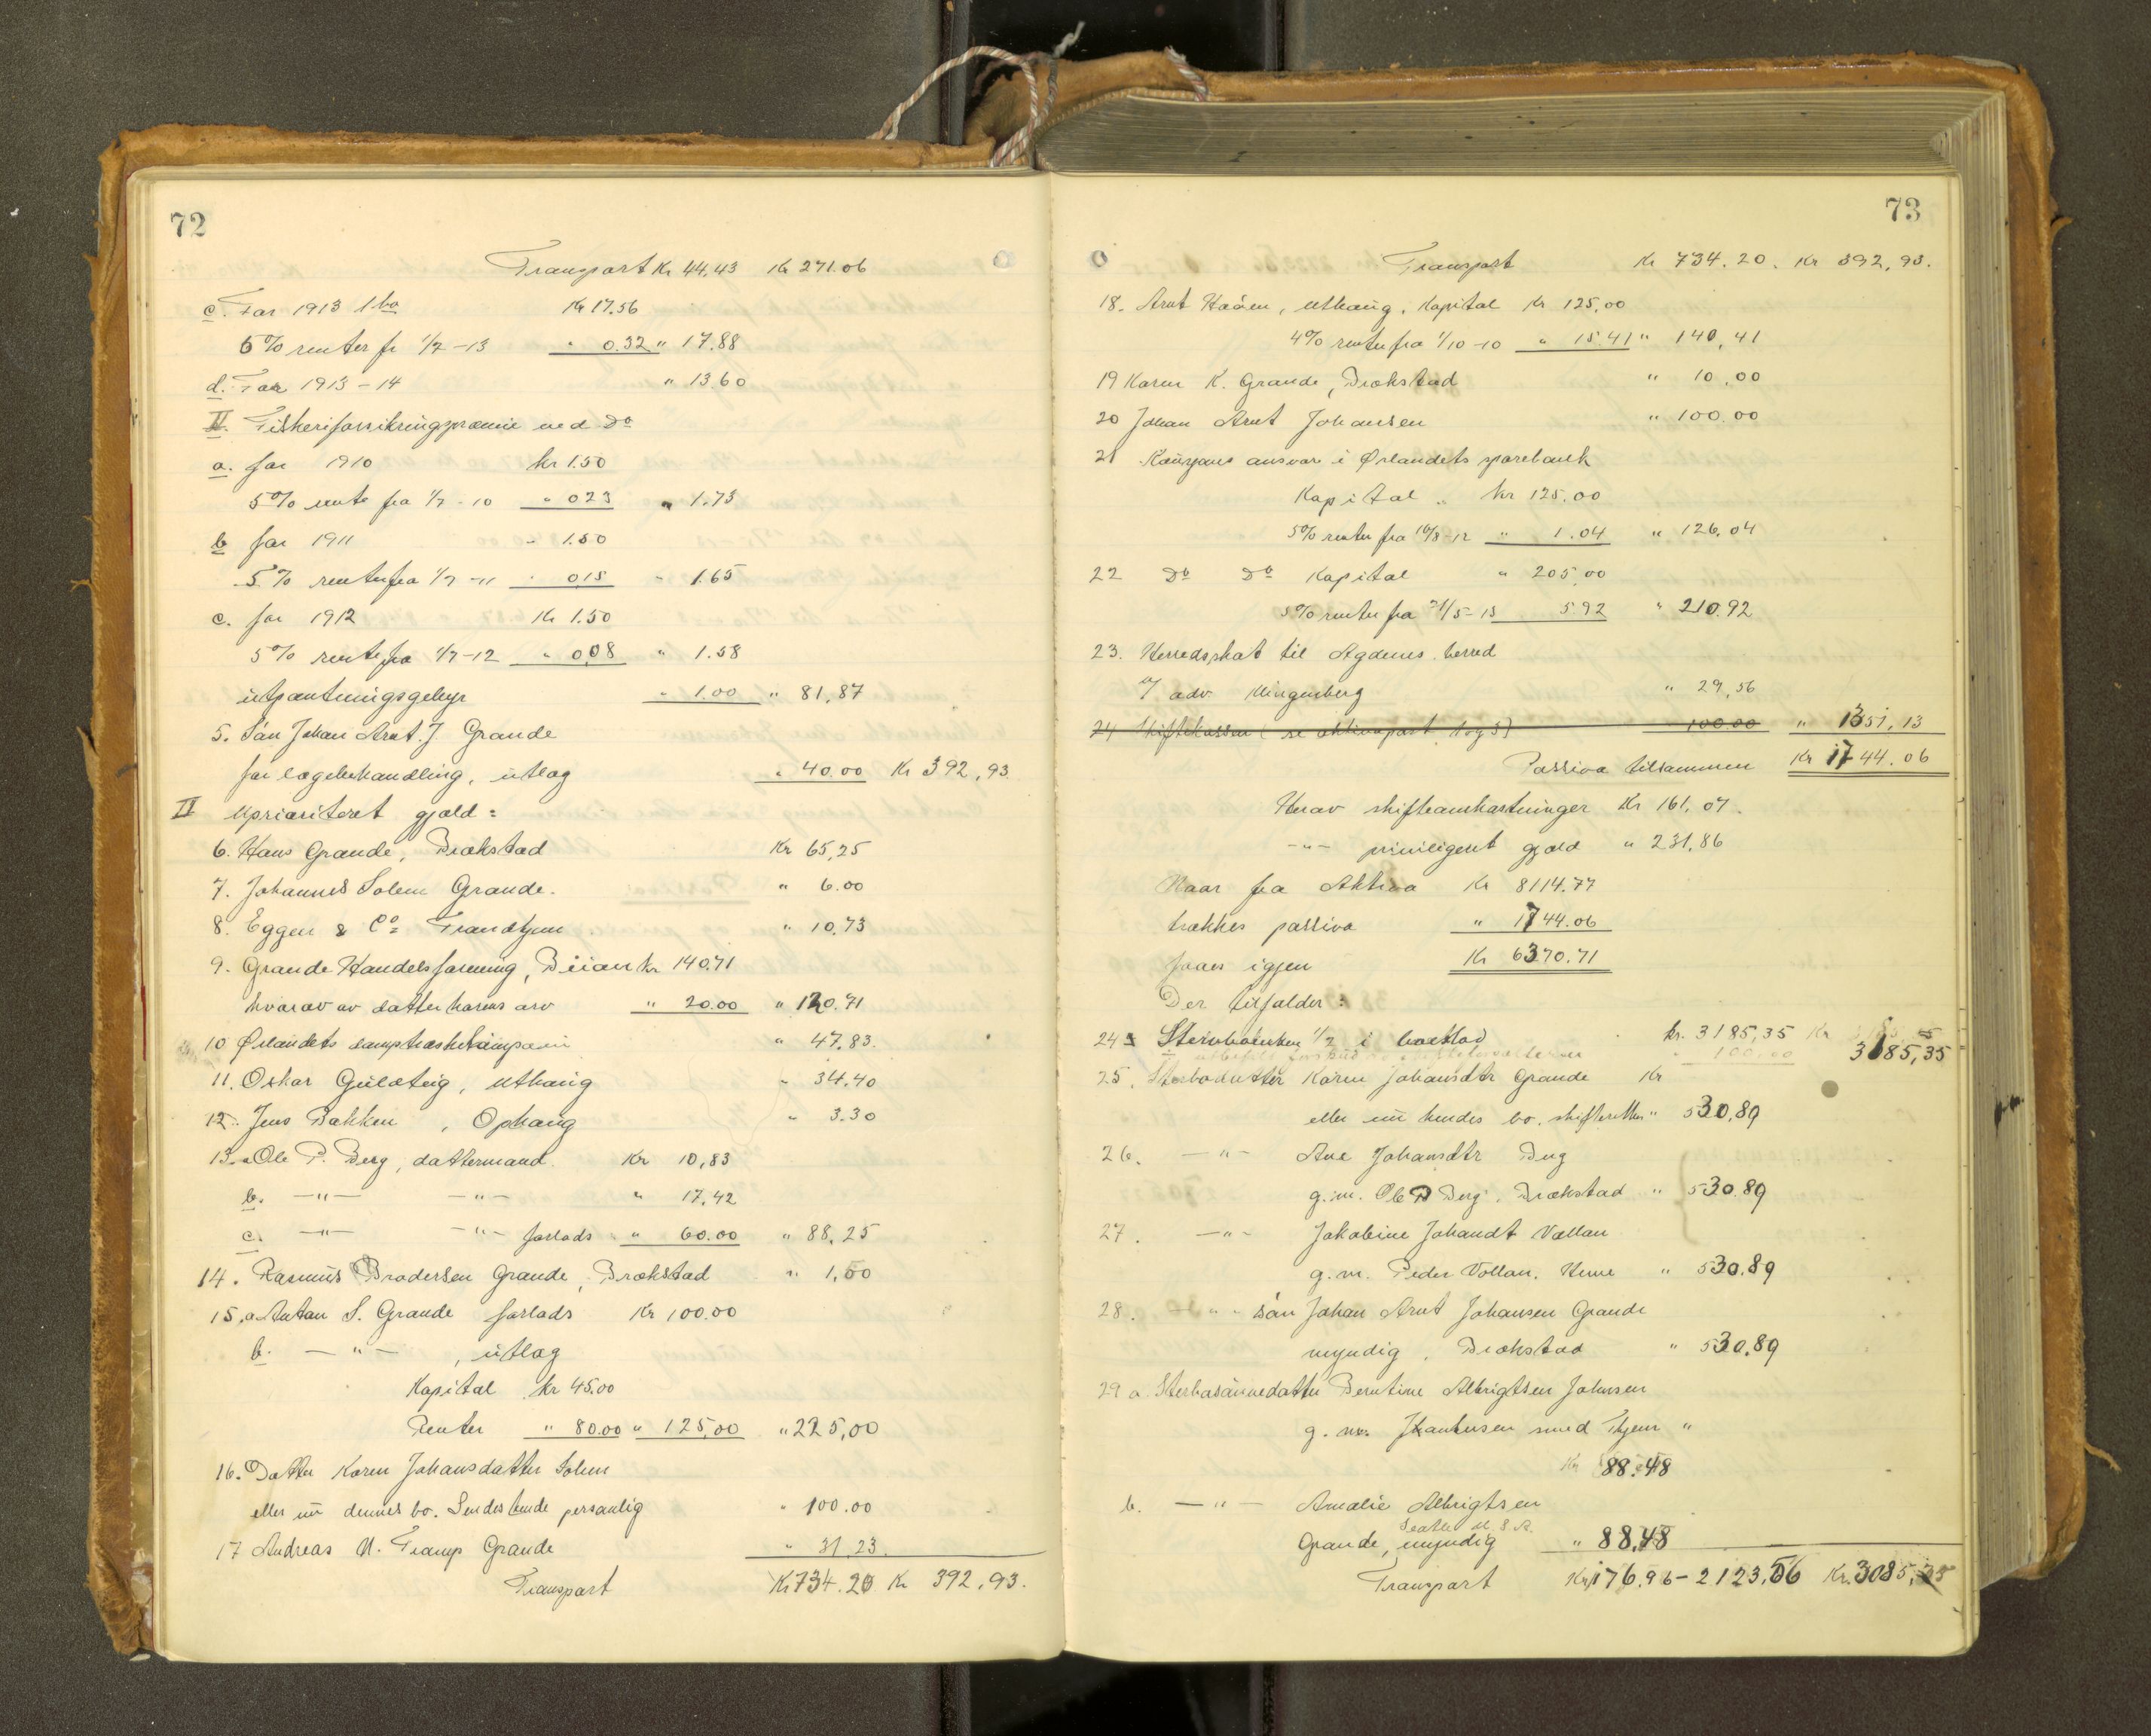 72
Transport Kr 44,43 Kr 271.06
c. For 1913 1ho Kr 17.56
6% renter fr 1/7-13 " 0.32 " 17.88
d. For 1913-14 " 13.60
II. Fiskeriforsikringspræmie ved Do
a. for 1910 kr 1.50
5% rente fra 1/7-10 " 023 " 1.73
b for 1911 " 1.50
5% renter fra 1/7-11 " 015 " 1.65
c. for 1912 Kr 1.50
5% rente fra 1/7-12 " 0,08 " 1.58
utpantningsgebyr " 1.00 " 81,87
5. Søn Johan Arnt J Grande
for lægebehandling, utlæg " 40.00 Kr 392,93
II Uprioriteret gjæld:
6. Hans Grande, Brækstad Kr 65,25
7. Johannes Solem Grande. " 6.00
8. Eggen & Co Trondhjem " 10,73
9. Grande Handelsforening, Brian kr 140.71
hvorav av datter Karens arv " 20.00 " 120.71
10 Ørlandets damptræskekompani " 47,83.
11. Oskar Guldteig, Uthaug " 34.40
12. Jens Bakken, Ophaug " 3.30
13. a Ole P. Berg, dattermand Kr 10,83
b. -"- -"- " 17,42
c. -"- -"- forlods " 60.00 " 88,25
14. Rasmus Brodersen Grande, Brækstad " 1,50
15. a Anton S. Grande forlods Kr 100.00
b. -"-, utlæg
Kapital kr 45.00
Renter " 80.00 " 125,00 " 225,00
16. Datter Karen Johansdatter Solem
eller nu dennes bo. Sendes hende personlig " 100.00
17 Andreas N. Tramp Grande " 31,23.
Transport Kr 734.20 Kr 392,93.
73
Transport Kr 734.20. Kr 392,93.
18. Arnt Haaen, Uthaug, Kapital Kr 125,00
4% renter fra 1/10-10 " 15.41 " 140,41
19 Karen K. Grande, Brækstad " 10,00
20 Johan Arnt Johansen " 100.00
21 Kausjons ansvar i Ørlandets sparebank
Kapital " Kr 125.00
5% renter fra 10/8-12 " 1.04 " 126,04
22 Do Do Kapital " 205,00
5% renter fra 21/5-13 5.92 " 210.92
23. Herredsskat til Agdenes herred
v/ adv Klingenberg " 29,56
24 Skiftekassen (se aktivapost 1 og 5) 100.00 " 1351,13
Passiva tilsammen Kr 1744.06
Herav skifteomkostninger Kr 161,07.
-"- priviligeret gjæld " 231,86
Naar fra Aktiva Kr 8114.77
trækkes passiva " 1744.06
faaes igjen Kr 6370.71
Der tilfalder:
24 Stervboenken 1/2 i boeslod kr. 3185,35 Kr 3185,35
100.00
25. Sterbodatter Karen Johansdtr Grande Kr
eller nu hendes bo. skifteretten " 530,89
26. -"- Ane Johansdtr Berg
g.m. Ole P Berg, Brækstad " 530.89
27. -"- Jakobine Johansdt Vollan
g.m. Peder Vollan. Hevne " 530.89
28. -"- søn Johan Arnt Johansen Grande
myndig, Brækstad " 530.89
29 a. Sterbosønnedatter Berntine Albrigtsen Johnsen
g. m. smed Thjem "
Kr 88.48
b. -"- Amalie Albrigtsen
Seatle U.S.A.
Grande, myndig " 88,48
Transport Kr 176.96 - 2123,56 Kr. 3085,35